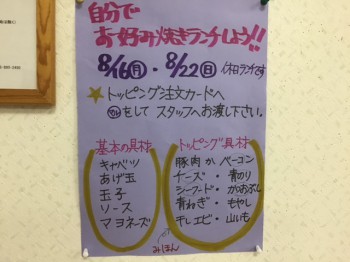 自分で
お好み焼きランチしよう!!
8/16(月)・8/22(日) 休日ランチです
★トッピング注文カードへ
をして スタッフへお渡し下さい。
基本の具材
キャベツ
あげ玉
玉子
ソース
マヨネーズ
トッピング具材
豚肉 か ベーコン
チーズ・青のり
シーフード・かつおぶし
青ねぎ・もやし
干しエビ・山いも
みほん